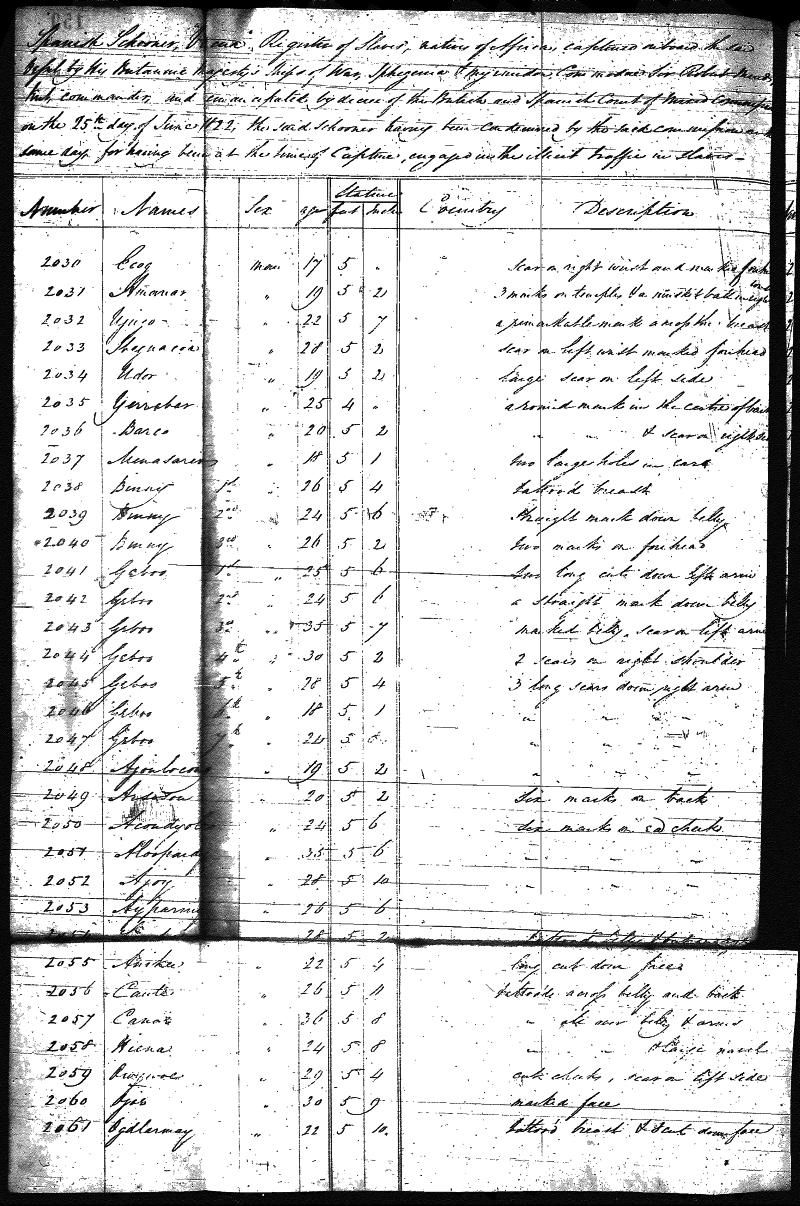 Spanish Schooner, Register of Slaves, natives of Africa, captured on board the said
Vessel by His Britannic Majesty's Ships of War, Iphigenia & Myrmidon, Commodore Sir Robert
commander, and emancipated by decree of the British and Spanish Court of Mixed Commission
on the 25th day of June 1822, the said schooner having been condemned by the said commission on the
same day for having been at the time of Capture, engaged in the illicit traffic in Slaves -
Stature
Number Names Sex age feet Inch Country Description
2030 man 17 5 " scar on right wrist and marked
2031 Amanar " 19 5 2 3 marks on temples & a musket ball
2032 " 22 5 7 a remarkable mark across the breast
2033 " 28 5 2 scar on left wrist marked forehead
2034 Udor " 19 5 2 large scar on left side
2035 Yerrobar " 25 4 " a round mark in the centre of back
2036 Barco " 20 5 2 " " & scar on right
2037 " 18 5 1 two large holes in ears
2038 Binny 1st " 26 5 4 tattoo'd breast
2039 Binny 2nd " 24 5 6 straight mark down belly
2040 Binny 3rd " 26 5 2 two marks on forehead
2041 Geboo 1st " 25 5 6 two long cuts down left arm
2042 Geboo 2nd " 24 5 6 a straight mark down belly
2043 Geboo 3rd " 35 5 7 marked belly, scar on left arm
2044 Geboo 4th " 30 5 2 2 scars on right shoulder
2045 Geboo 5th " 28 5 4 3 long scars down right arm
2046 Geboo 6th " 18 5 1 " " "
2047 Geboo 7th " 24 5 " " "
2048 " 19 5 2 " " "
2049 " 20 5 2 six marks on back
2050 " 24 5 6 six marks on cheeks
2051 " 35 5 6 " " "
2052 Ajoy " 28 5 10 " " "
2053 " 26 5 6
28 5 2
2055 " 22 5 4 long cut down face
2056 Caute " 26 5 11 tattoo'd across belly and back
2057 Canoe " 36 5 8 " belly & arms
2058 Hiena " 24 5 8 " " & large navel
2059 " 29 5 4 cut cheeks, scar on left side
2060 Ojoe " 30 5 9 marked face
2061 " 22 5 10 tattoo'd breast & cut down face